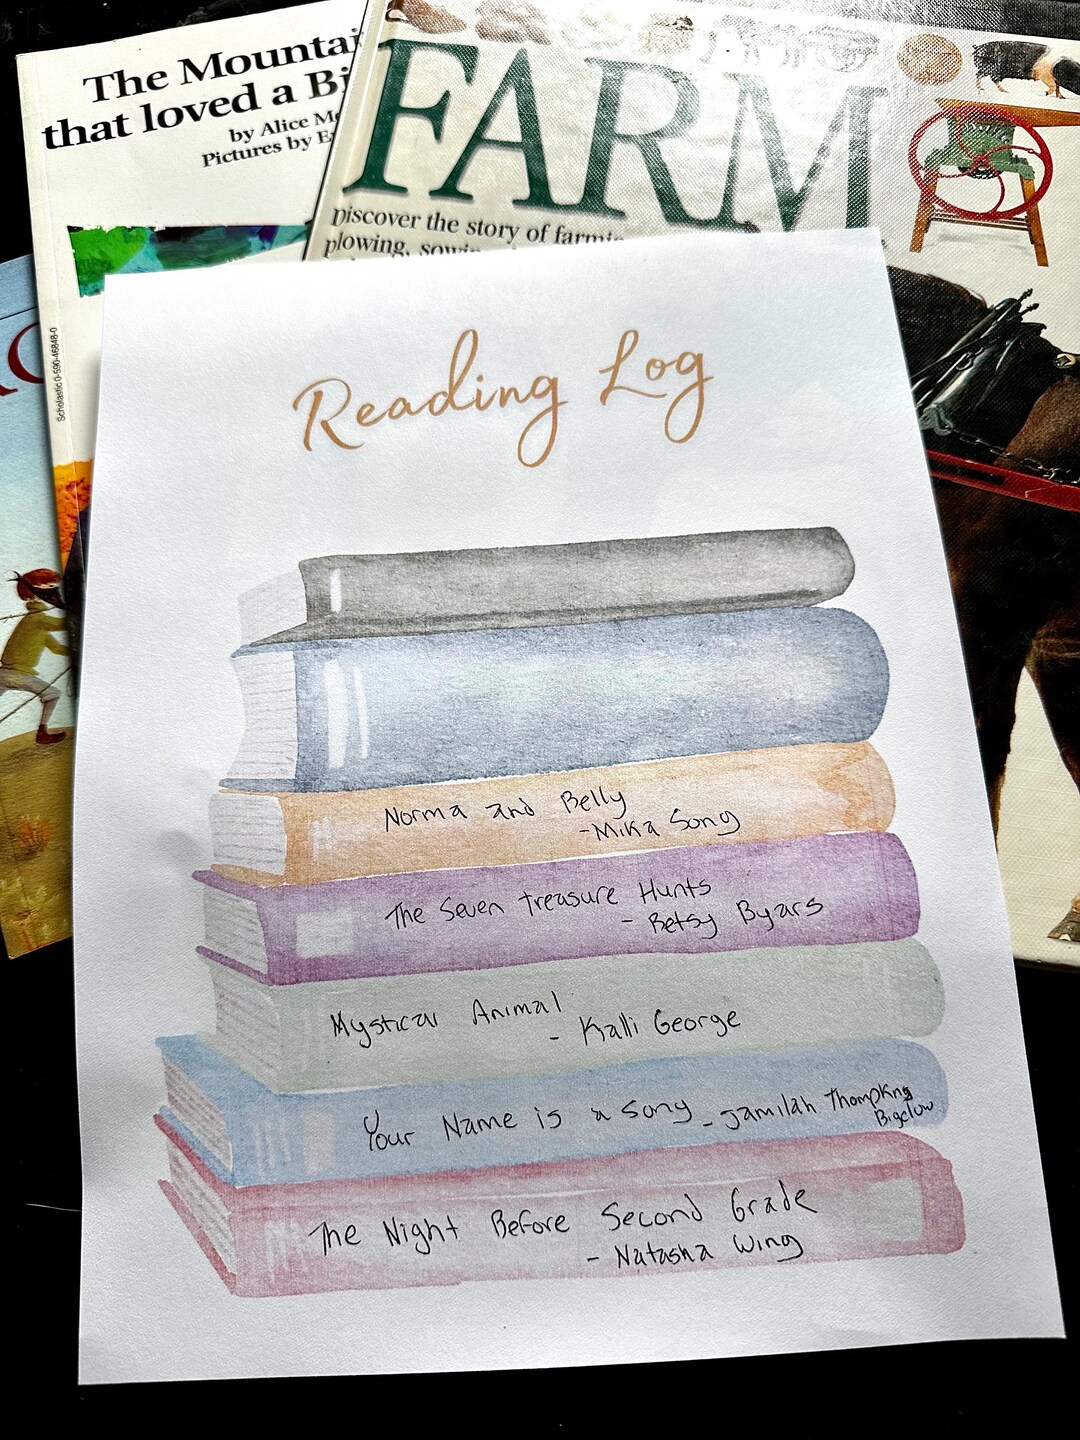 The Mountai
that loved a Bi
by Alice Mc
Pictures by E
FARM
Discover the story of farmi
plowing, sowi
Scholastic 0-590-46848-0
Reading Log
Norma and Belly
-Mika Song
The Seven treasure Hunts
- Betsy Byars
Mystical Animal
- Kalli George
Your Name is a Song - Jamilah Thompkins
Bigelow
The Night Before Second Grade
- Natasha Wing